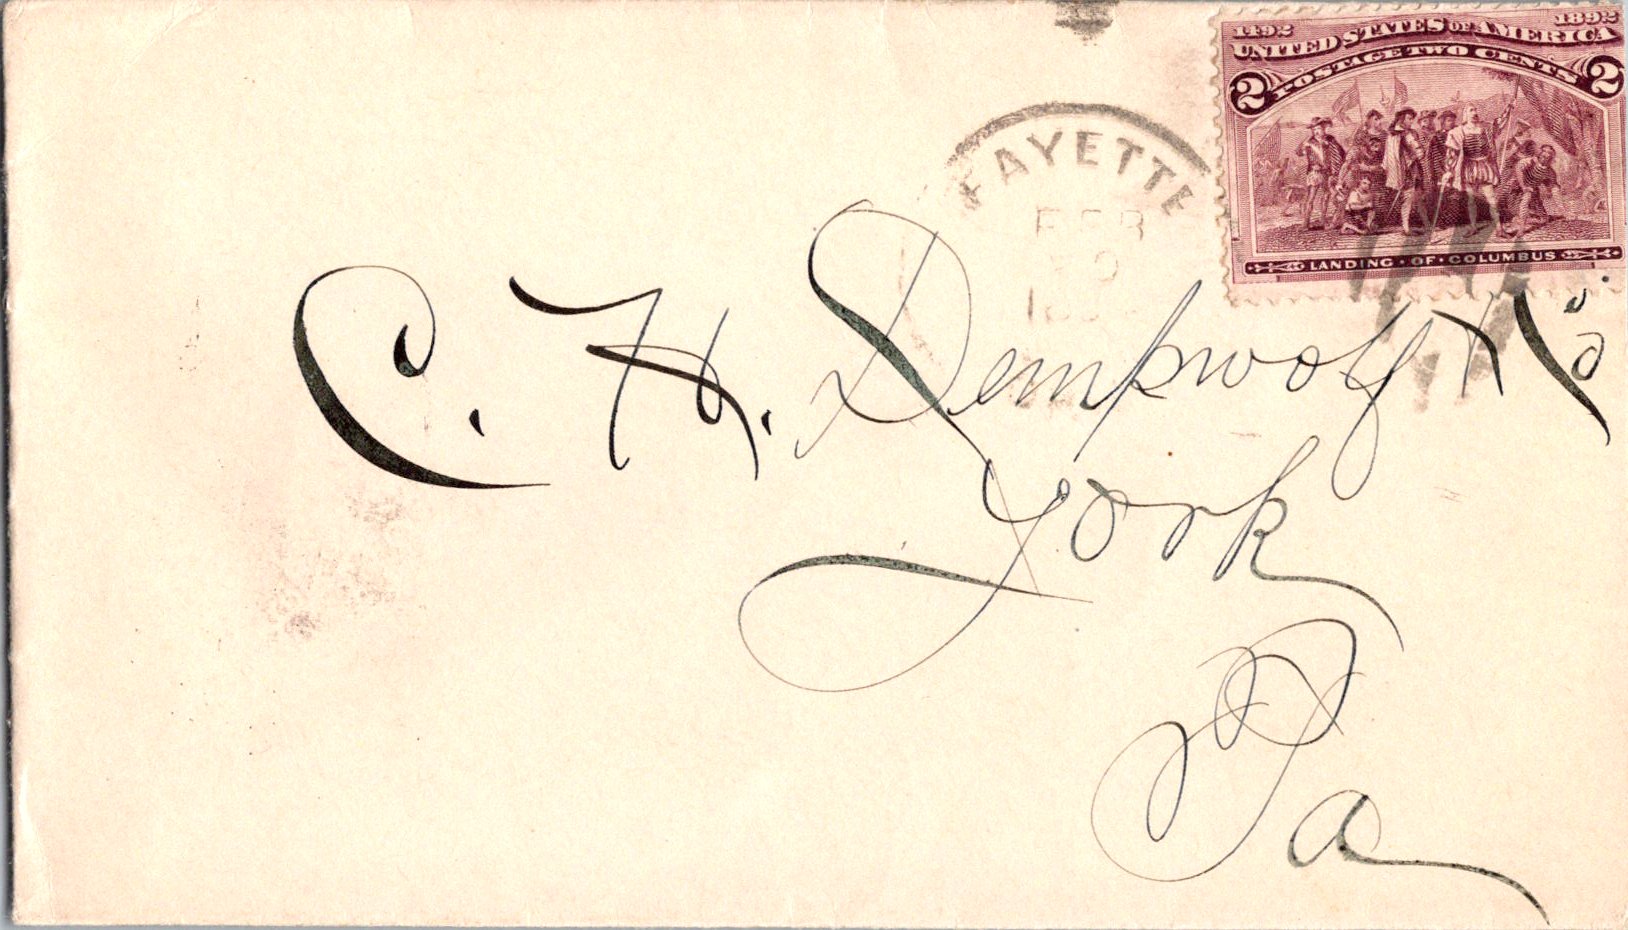 1492 1892
UNITED STATES OF AMERICA
POSTAGE TWO CENTS
2 2
LANDING · OF · COLUMBUS
FAYETTE
FEB
C. H. Dempwolf
York
Pa